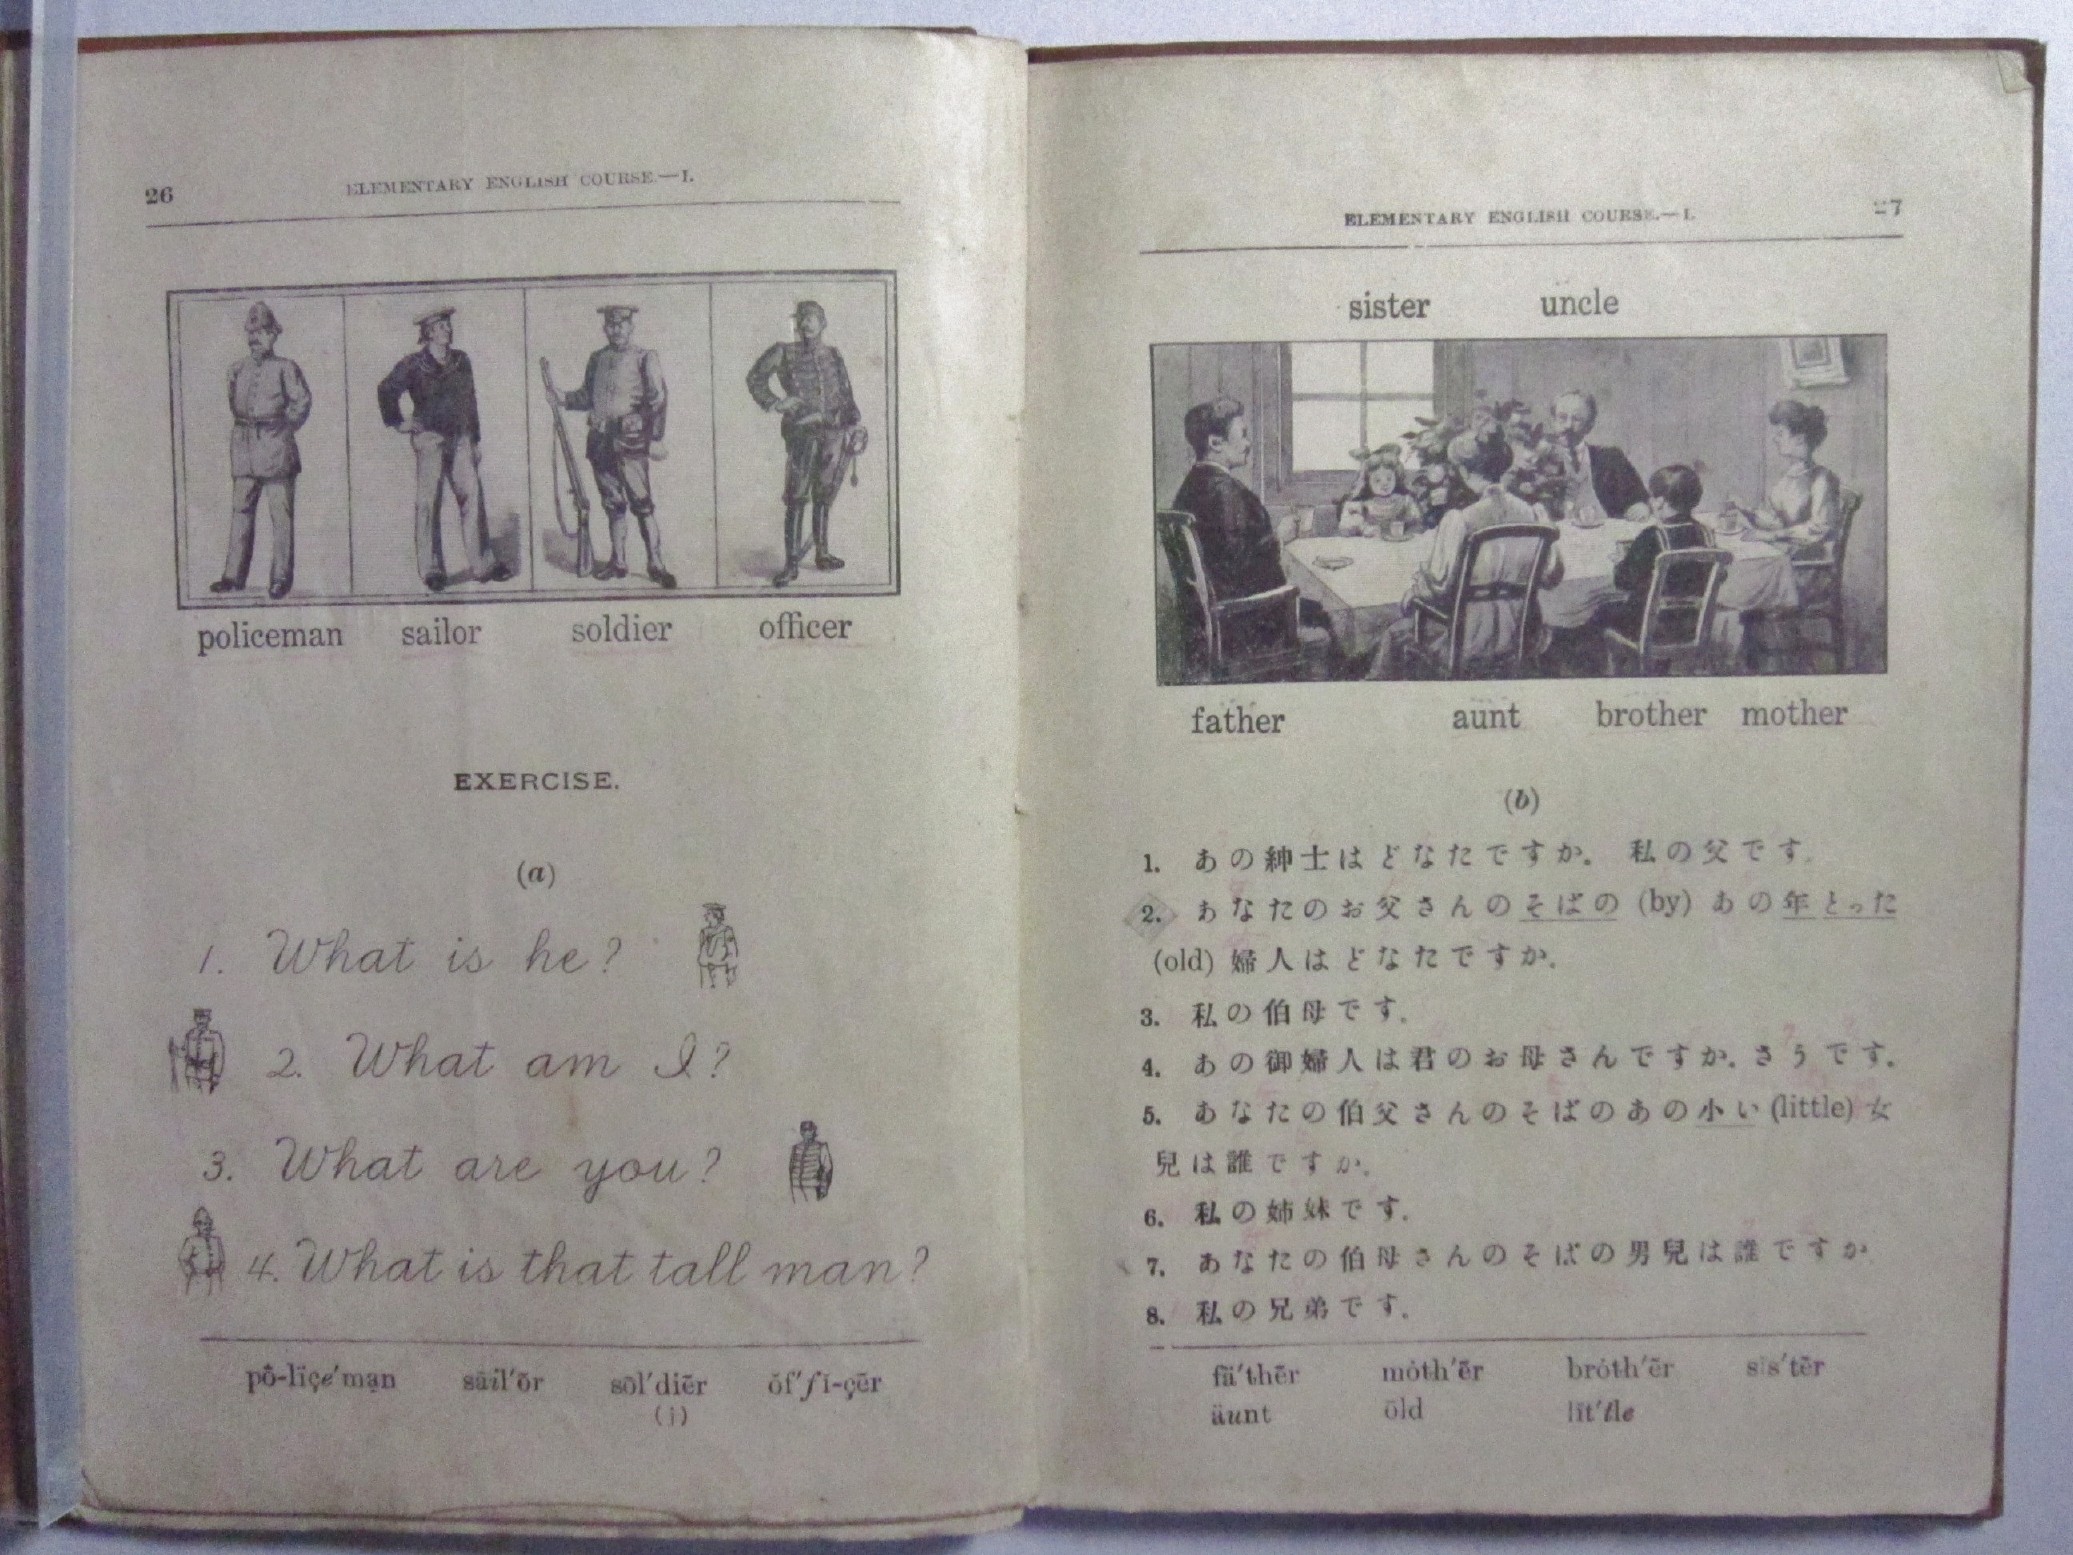 26
ELEMENTARY ENGLISH COURSE.—I.
policeman sailor soldier officer
EXERCISE.
(a)
1. What is he?
2. What am I?
3. What are you?
4. What is that tall man?
pō̍-lïçe′man̤ sāil′õr sōl′diẽr ŏf′fĭ-çẽr
(j)
ELEMENTARY ENGLISH COURSE.—I.
27
sister uncle
father aunt brother mother
(b)
1. あの紳士はどなたですか. 私の父です.
2. あなたのお父さんのそばの (by) あの年とった
(old) 婦人はどなたですか.
3. 私の伯母です.
4. あの御婦人は君のお母さんですか. さうです.
5. あなたの伯父さんのそばのあの小い (little) 女
兒は誰ですか.
6. 私の姉妹です.
7. あなたの伯母さんのそばの男兒は誰ですか
8. 私の兄弟です.
fä′thẽr mȯth′ẽr brȯth′ẽr sĭs′tẽr
äunt ōld lĭt′tle